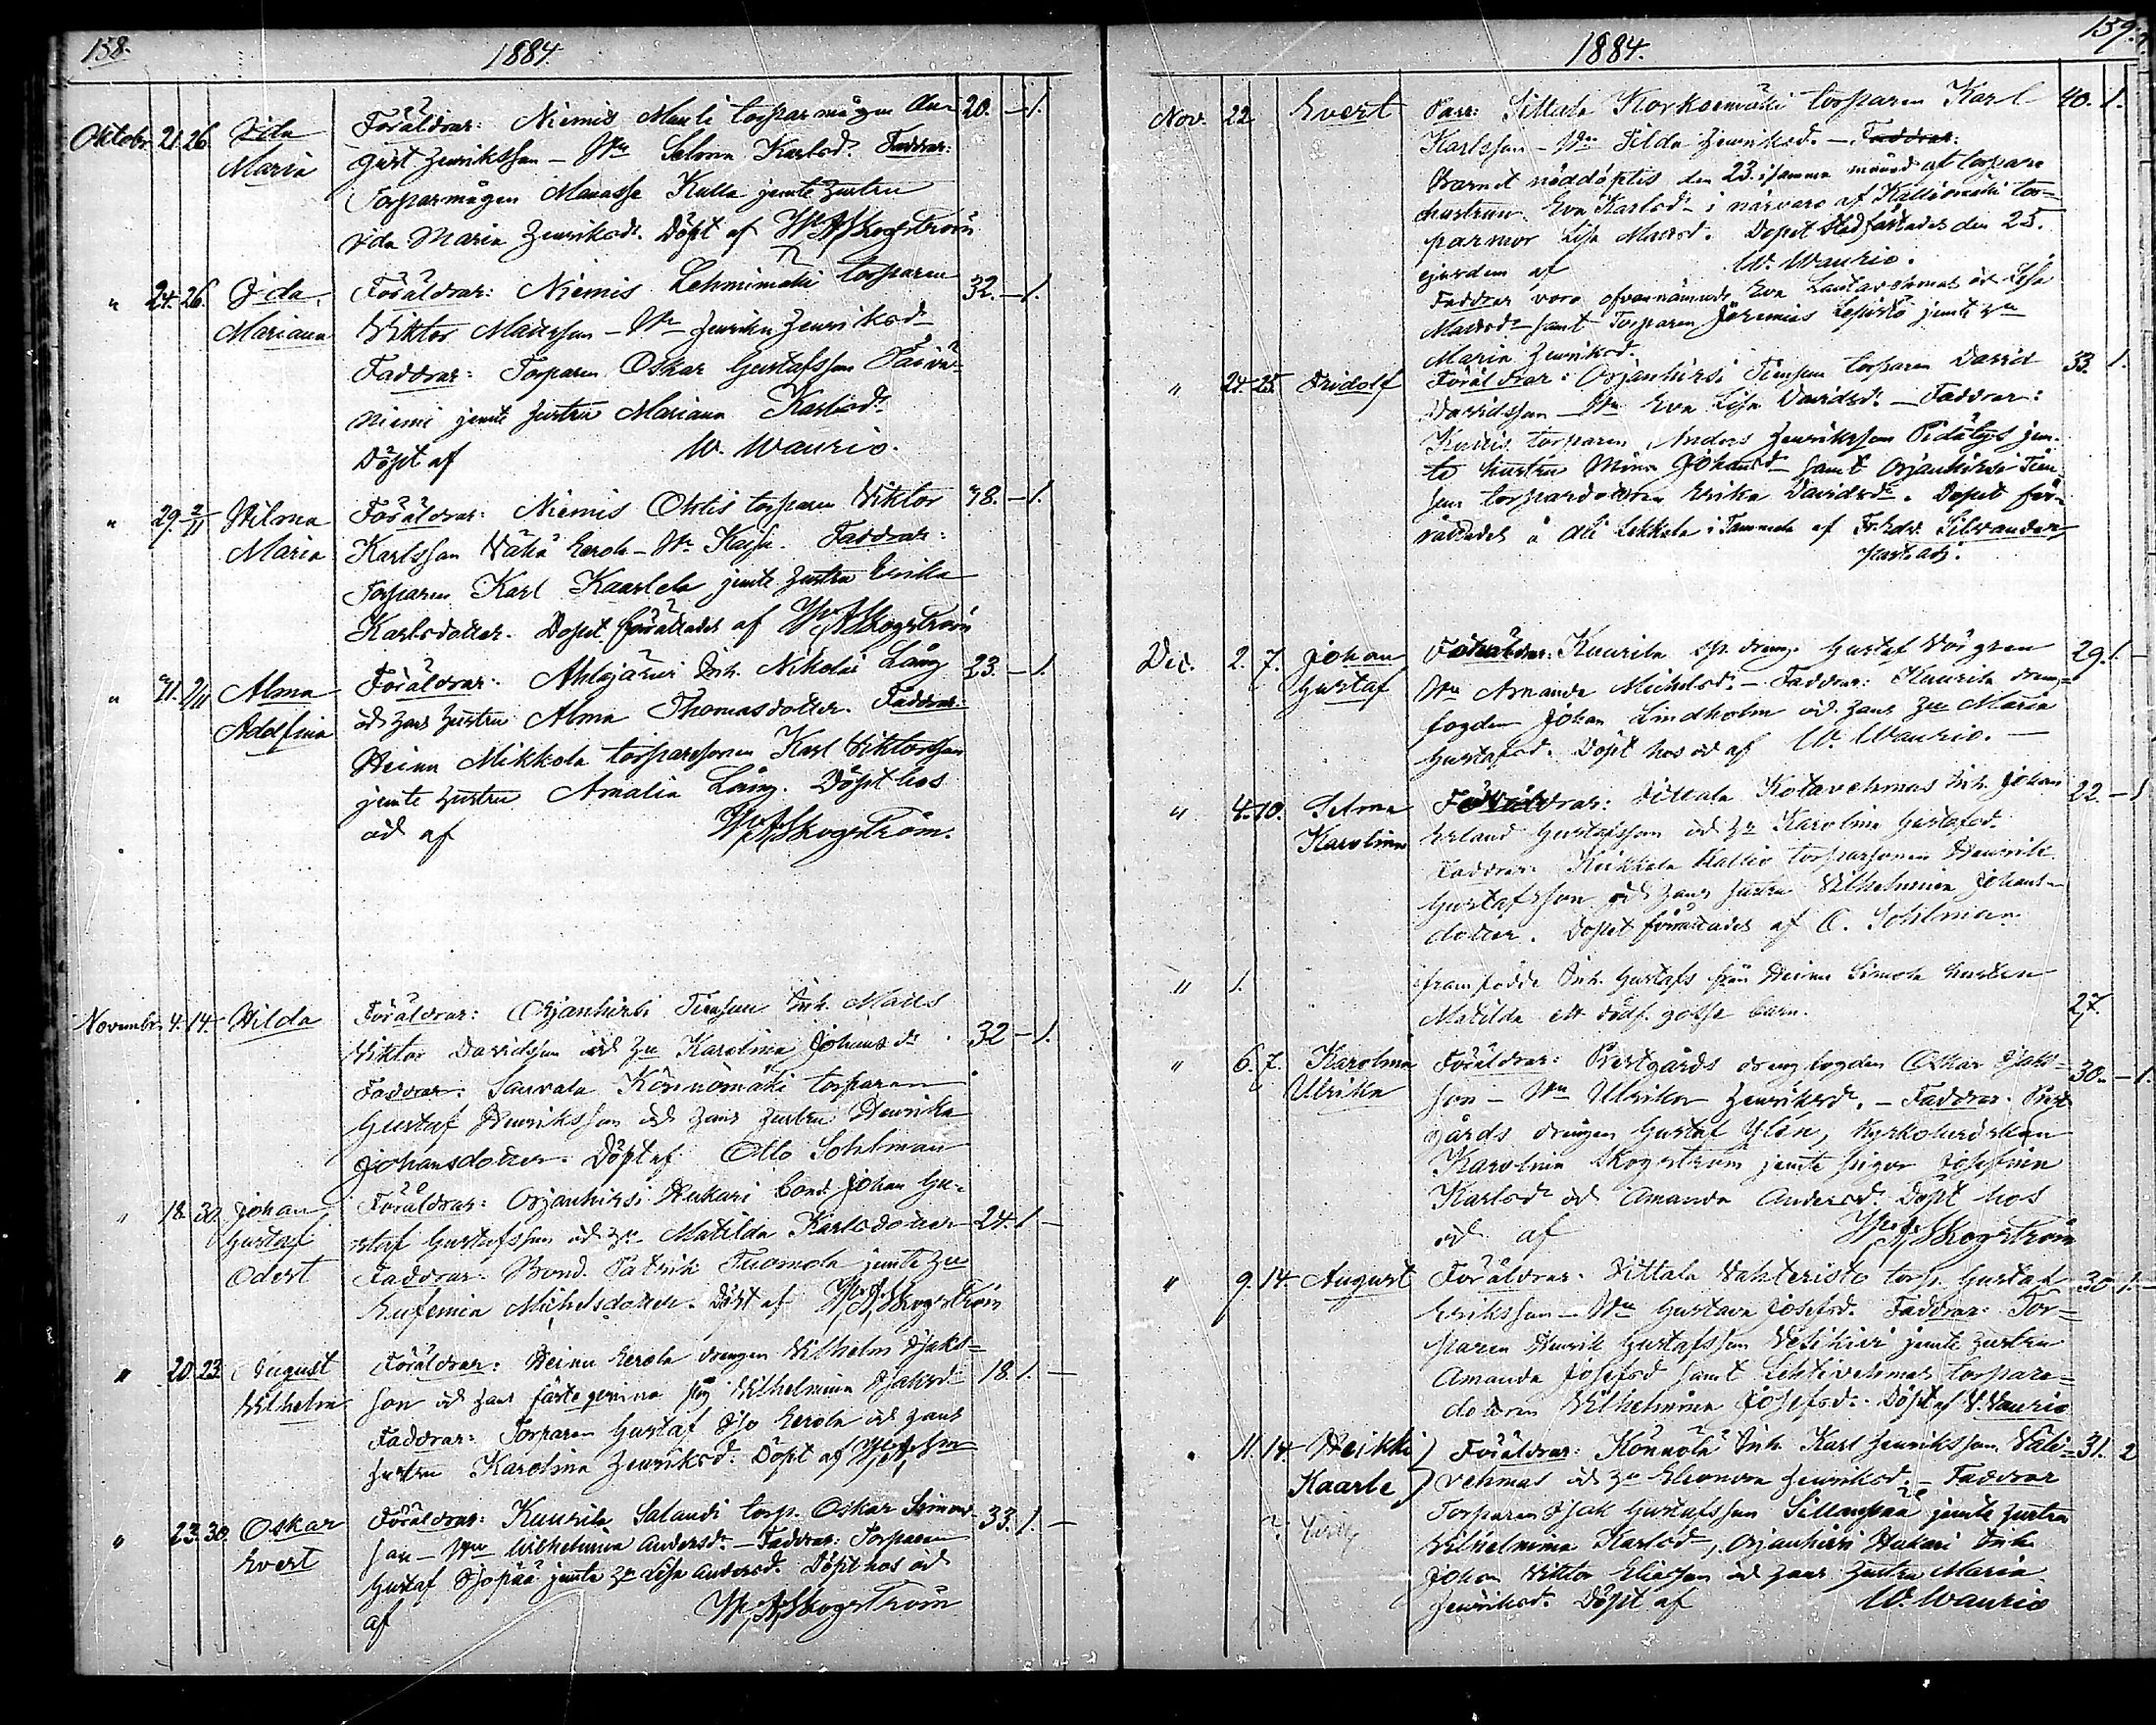 158.
1884.
Oktobr. 21. 26. Ida Föräldrar: Niemis Mauli torparmågen Au- 20. — 1.
Maria gust Henriksson — Hu Selma Karlsd. Faddrar:
Torparmågen Manasse Kulla jemte hustru
Ida Maria Henriksd. Döpt af W. A. Skogström
" 24. 26. Ida Föräldrar: Niemis Lehmimäki torparen 32. — 1.
Mariana Viktor Mattsson — Hu Henrika Henriksd.
Faddrar: Torparen Oskar Gustafsson Päivä-
niemi jemte hustru Mariana Karlsd.
Döpt af W. Waurio.
" 29. 2/11 Hilma Föräldrar: Niemis Ohtis torparen Viktor 48. — 1.
Maria Karlsson Vähä Eerola — Hu Kajsa. Faddrar:
Torparen Karl Kaarlela jemte hustru Erika
Karlsdotter. Dopet förättades af W. A. Skogström
" 2/11 Alma Föräldrar: Ahlajärvi Inh. Nikolai Lång 23. — 1.
Adolfina och hans hustru Alma Thomasdotter. Faddrar:
Heinu Mikkola torparesonen Karl Viktorsson
jemte hustru Amalia Lång. Döpt hos
oss af W. A. Skogström.
Novembr. 4. 14. Hilda Föräldrar: Orjanhirsi Tiensuu Inh. Matts
Viktor Davidsson och hu Karolina Johansd. 32 — 1.
Faddrar: Sauvala Könnömäki torparen
Gustaf Henriksson och hans hustru Henrika
Johansdotter. Döpt af Otto Sohlman
" 18. 30. Johan Föräldrar: Orjanhirsi Hukari bond. Johan Gu-
Gustaf staf Gustafsson och hu Matilda Karlsdotter 24. 1. —
Edert Faddrar: Bond. Patrik Tuomola jemte hu
Eufemia Michelsdotter. Döpt af W. A. Skogström
" 20. 23. August Föräldrar: Heinu Eerola drengen Vilhelm Isaks-
Vilhelm son och hans fästeqvinna pig. Vilhelmina Isaksd. 18. 1. —
Faddrar: Torparen Gustaf Iso Eerola och hans
hustru Karolina Henriksd. Döpt af
" 23. 30. Oskar Föräldrar: Kuurila Salaudi torp. Oskar Simons- 33. 1. —
Evert son — Hu Vilhelmina Andersd. — Faddrar: Torparen
Gustaf Isopää jemte hu Lisa Andersd. Döpt hos oss
af W. A. Skogström
159.
1884.
Nov. 22 Evert Parr: Sittala Korkeemäki torparen Karl 40. 1.
Karlsson — Hu Tilda Henriksd. — Faddrar:
Barnet nöddöptes den 23 i samma månad af torpare
hustrun Eva Karlsd. i närvaro af Kalliomäki tor-
parmor Lisa Mattsd. Dopet stadfästades den 25.
ejusdem af W. Waurio.
Faddrar voro ofvannämnde Eva och Lisa
Mattsd. samt Torparen Jeremias Lepistö jemte hu
Maria Henriksd.
" 24. 25. Fridolf Föräldrar: Orjanhirsi Tiensuu torparen David 33. 1.
Davidsson — Hu Eva Lisa Davidsd. — Faddrar:
torparen Anders Henriksson jem-
te hustru Mina Johansd. samt Orjanhirsi Tien-
suu torpardottren Erika Davidsd. Dopet för-
rättades å Ali Lekkala i Tammela af Fr. Edv. Silvander
past. adj.
Dec. 2. 7. Johan Föräldrar: Kuurila dreng. Gustaf Norgren 29. 1. —
Gustaf Hu Amanda Michelsd. — Faddrar: Kuurila dreng-
fogden Johan Lindholm och hans hu Maria
Gustafsd. Döpt hos oss af W. Waurio. —
" 4. 10. Selma Föräldrar: Sittala Kotavehmas Inh. Johan 22. — 1
Karolina Erland Gustafsson och hu Karolina Gustafsd.
Faddrar: Keikkala Kallio torparsonen Henrik
Gustafsson och hans hustru Vilhelmina Johans-
dotter. Dopet förrättades af O. Sohlman.
" 1. framfödde Inh. Gustafs från Heinu Simola hustru
Matilda ett dödf. gosse barn. 27.
" 6. 7. Karolina Föräldrar: Prestgårds drengfogden Oskar Isaks- 30. — 1.
Ulrika son — Hu Ulrika Henriksd. — Faddrar: Prest-
gårds drängen Gustaf Ylén, Kyrkoherdskan
Karolina Skogström jemte pigor Josefina
Karlsd. och Amanda Andersd. Döpt hos
oss af W. A. Skogström
" 9. 14. August Föräldrar: Sittala Vahteristo torp. Gustaf 30 1. —
Eriksson — Hu Gustava Josefsd. Faddrar: Tor-
paren Henrik Gustafsson jemte hustru
Amanda Josefsd. samt Lehtivehmas torpare-
dottren Vilhelmina Josefsd. Döpt af W. Waurio
" 11. 14. Heikki ) Föräldrar: Könnölä Inh. Karl Henriksson Väli- 31. 2
Kaarle ) vehmas och hu Eleonora Henriksd. — Faddrar
Torparen Isak Gustafsson Sillanpää jemte hustru
Vilhelmina Karlsd., Orjanhirsi Hukari Inh.
Johan Viktor Eliasson och hans hustru Maria
Henriksd. Döpt af W. Waurio